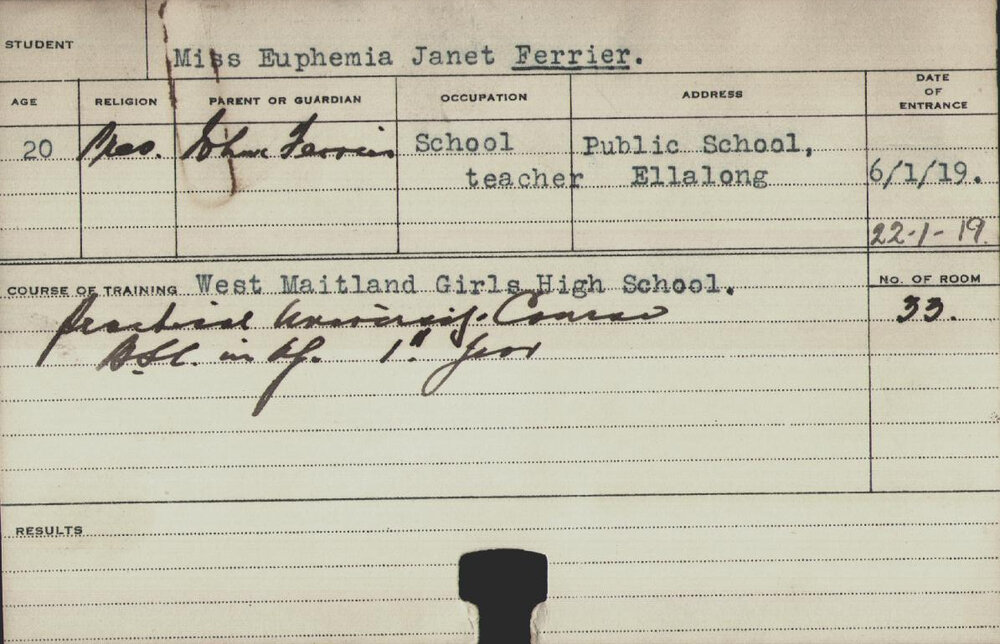 STUDENT
Miss Euphemia Janet Ferrier.
AGE RELIGION PARENT OR GUARDIAN OCCUPATION ADDRESS DATE OF ENTRANCE
20 Pres. John Ferrier School Public School,
teacher Ellalong 6/1/19.
22-1-19.
COURSE OF TRAINING West Maitland Girls High School. NO. OF ROOM
University Course 33.
B.Sc. in Ag. 1st Year
RESULTS